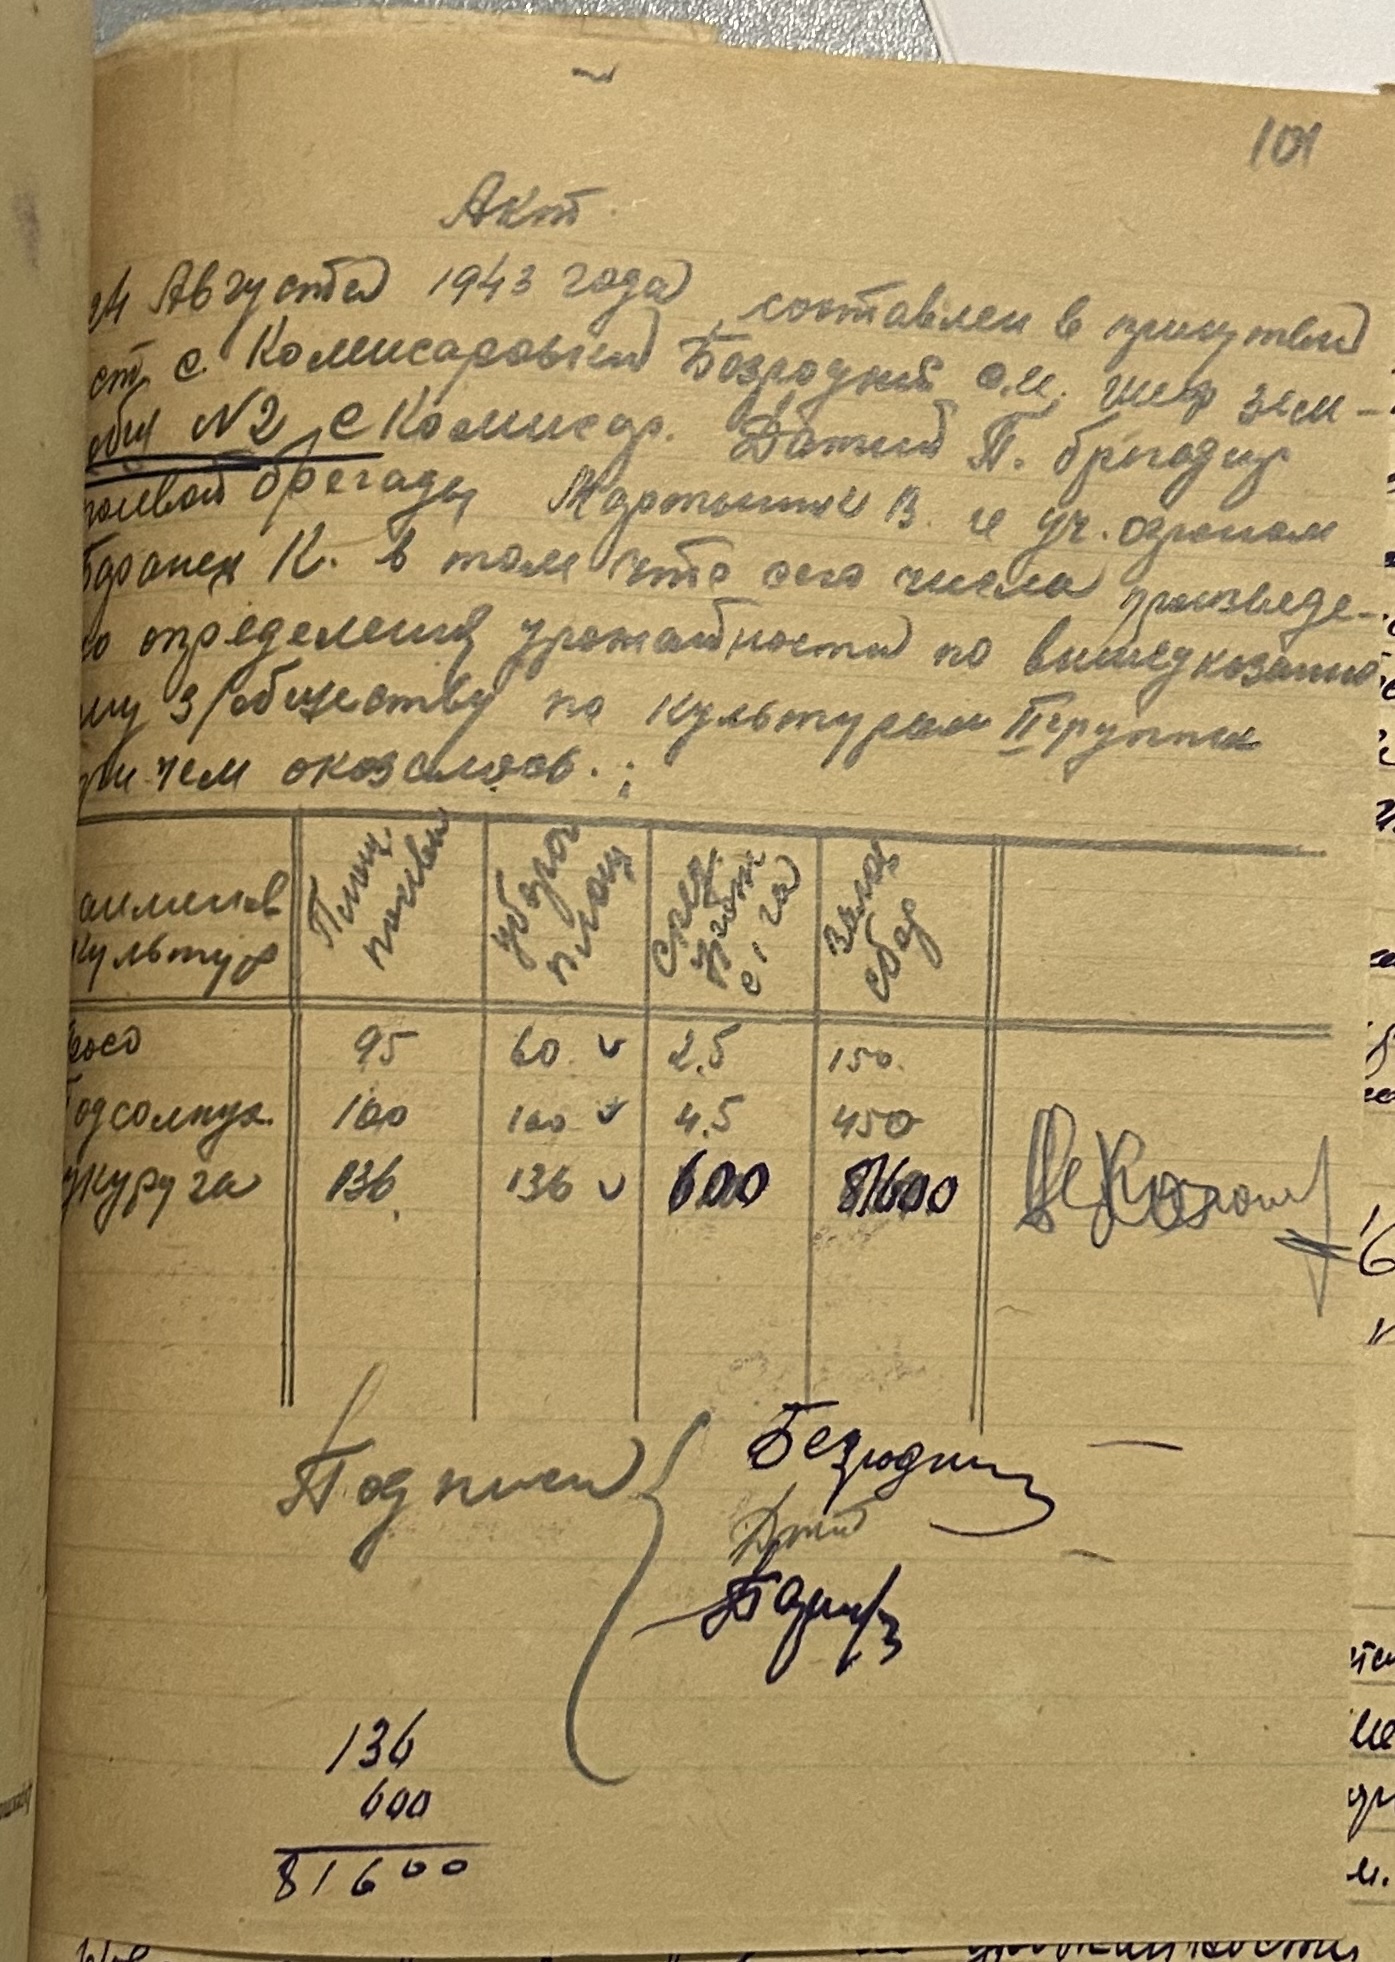 101
Акт.
24 Августа 1943 года составлен в присутствии
ст. с. Комисаровки Безродний О.И. шеф зем-
общ №2 с Комисар. Датий П. бригадир
полевой бригады Мартынюк В. и уч. агроном
К. в том что сего числа произведе-
но определения урожайности по вишеуказано
му з/обществу по культурам II группи
при чем оказалось.:
аименов культур
Площ. посева
уборог площ
сред. урож с 1 га
Валов сбор
росо 95 60 v 2.5 150.
Подсолнух. 100 100 v 4.5 450
укуруза 136 136 v 600 81600
Подписи
Безродний
Датий
136
600
81600